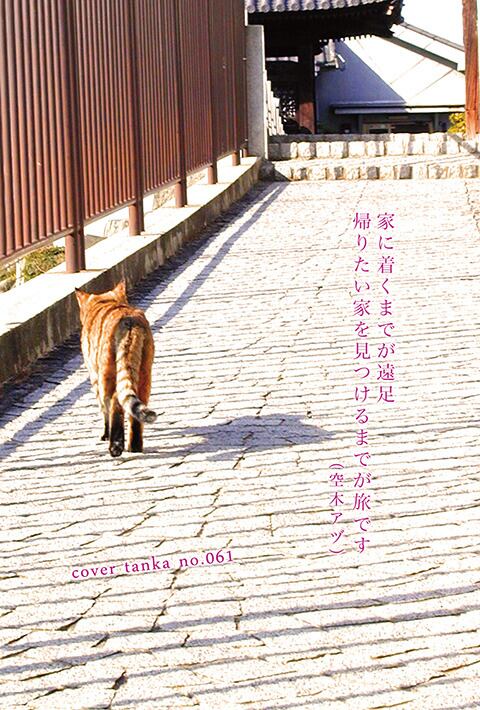 家に着くまでが遠足
帰りたい家を見つけるまでが旅です
（空木アヅ）
cover tanka no.061